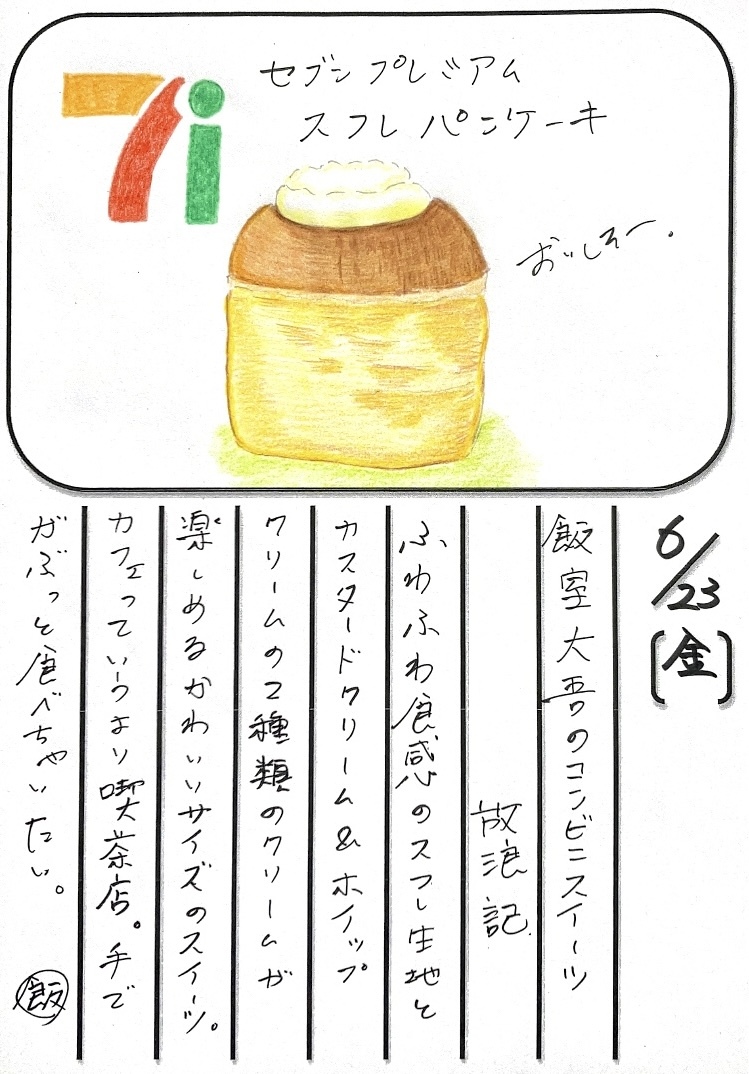 7i
セブンプレミアム
スフレパンケーキ
おいしそー。
6/23(金)
飯室大吾のコンビニスイーツ
放浪記
ふわふわ食感のスフレ生地と
カスタードクリーム&ホイップ
クリームの2種類のクリームが
楽しめるかわいいサイズのスイーツ。
カフェっていうより喫茶店。手で
がぶっと食べちゃいたい。
飯